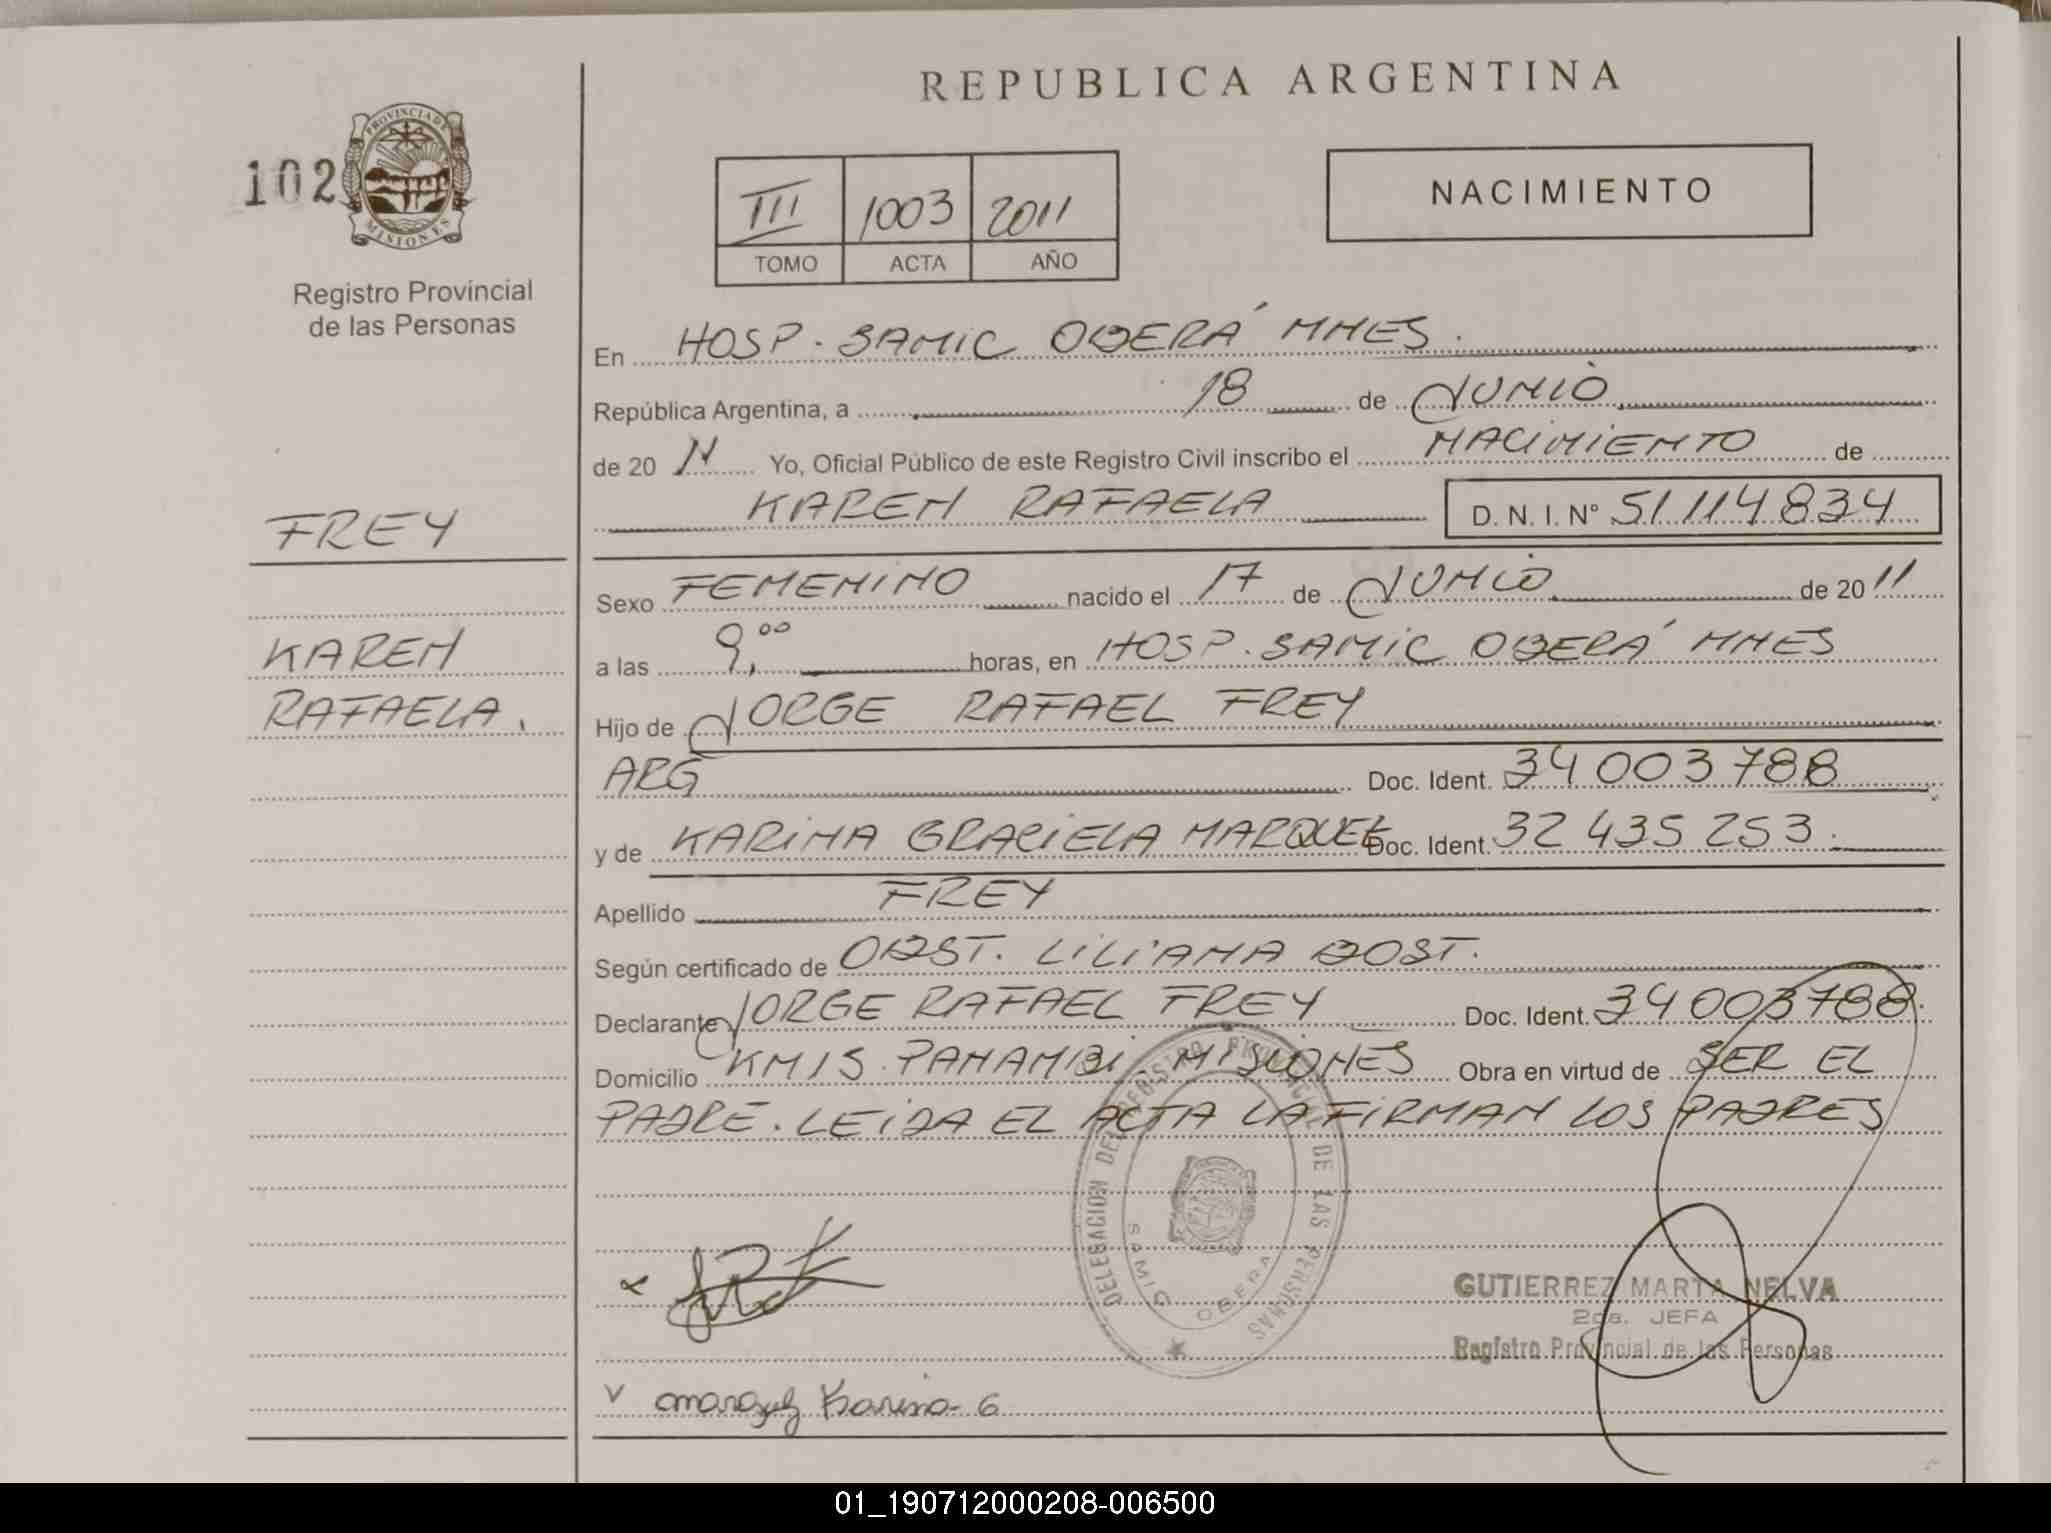 REPUBLICA ARGENTINA
PROVINCIA DE MISIONES
102
Registro Provincial
de las Personas
III 1003 2011
TOMO ACTA AÑO
NACIMIENTO
En HOSP. SAMIC OBERÁ MNES.
República Argentina, a 18 de JUNIO
de 20 11 Yo, Oficial Público de este Registro Civil inscribo el NACIMIENTO de
KAREN RAFAELA D. N. I. Nº 51.114.834
FREY
KAREN
RAFAELA.
Sexo FEMENINO nacido el 17 de JUNIO de 20 11
a las 9,00 horas, en HOSP. SAMIC OBERÁ MNES
Hijo de JORGE RAFAEL FREY
ARG Doc. Ident. 34 003 788
y de KARINA GRACIELA MARQUEZ Doc. Ident. 32 435 253.
Apellido FREY
Según certificado de OBST. LILIANA BOST.
Declarante JORGE RAFAEL FREY Doc. Ident. 34 003 788.
Domicilio KM 15. PANAMBI. MISIONES Obra en virtud de SER EL
PADRE. LEIDA EL ACTA LA FIRMAN LOS PADRES
DELEGACION DEL REGISTRO PROVINCIAL DE LAS PERSONAS
SAMIC OBERA
GUTIERREZ MARTA NELVA
2da. JEFA
Registro Provincial de las Personas
Marquez Karina G
01_190712000208-006500